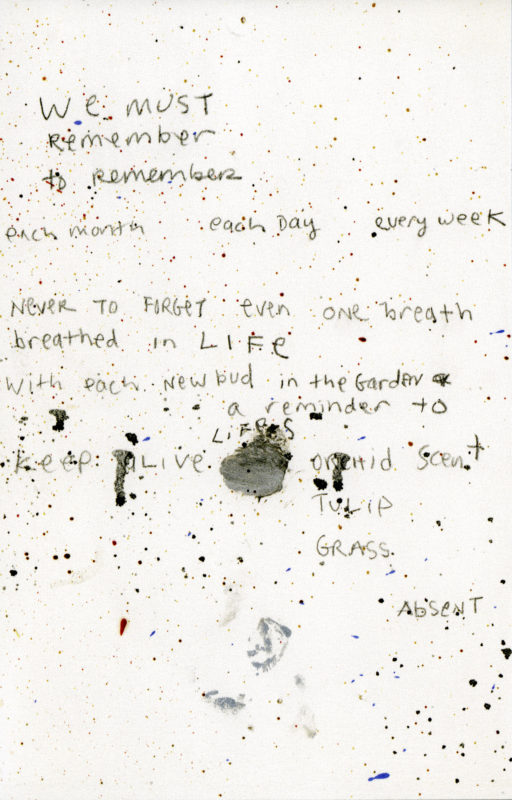 We MUST
Remember
to Remember
each month each Day every week
NEVER TO FORGET even ONE breath
breathed in LIFe
With each New bud in the Garden
a reminder to
LIFES
keep ALIVE orchid scent
TULIP
GRASS.
AbSENT